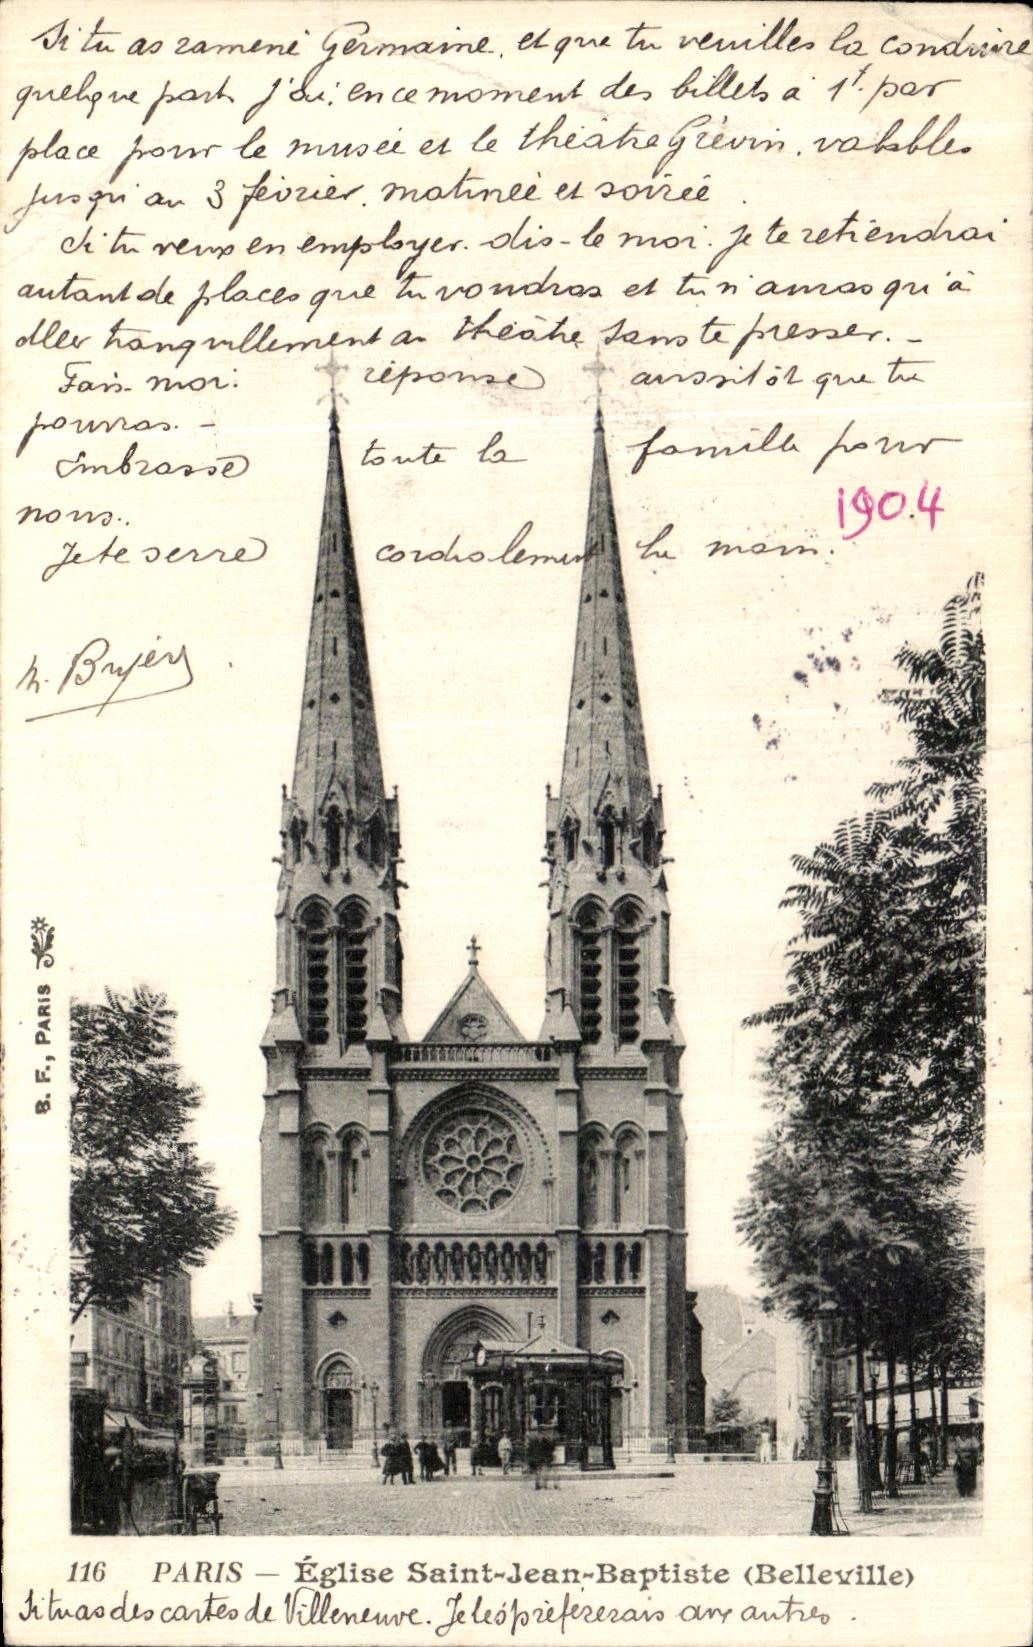 Si tu as ramené Germaine, et que tu veuilles la conduire
quelque part, j'ai, en ce moment des billets à 1f. par
place pour le musée et le théâtre Grévin, valables
jusqu'au 3 février, matinée et soirée.
Si tu veux en employer, dis-le moi. Je te retiendrai
autant de places que tu voudras et tu n'auras qu'à
aller tranquillement au théâtre sans te presser. _
Fais-moi réponse aussitôt que tu
pourras. _
Embrasse toute la famille pour
nous.
1904
Je te serre cordialement la main.
B. F., PARIS
116 PARIS — Église Saint-Jean-Baptiste (Belleville)
Si tu as des cartes de Villeneuve. Je les préfèrerais aux autres.